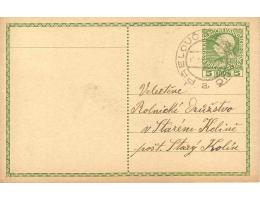 PŘELOUČ
5 5
Velectěné
Rolnické Družstvo
v Starém Kolíně
pošt. Starý Kolín